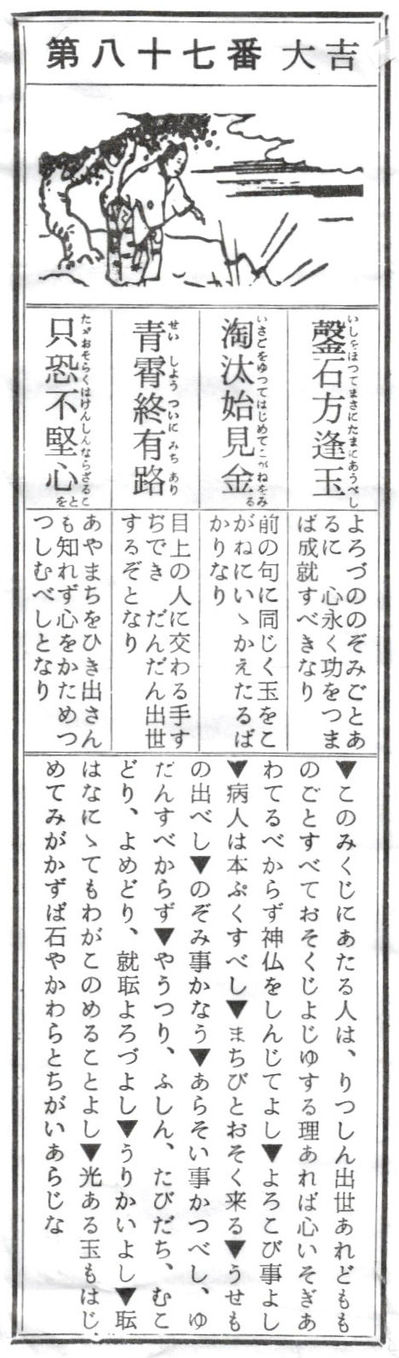 第八十七番 大吉
鑿石方逢玉
いしをほつてまさにたまにあうべし
淘汰始見金
いさごをゆつてはじめてこがねをみる
青霄終有路
せいしようついにみちあり
只恐不堅心
たゞおそらくはけんしんならざることを
よろづののぞみごとあ
るに 心永く功をつま
ば成就すべきなり
前の句に同じく玉をこ
がねにいゝかえたるば
かりなり
目上の人に交わる手す
ぢでき だんだん出世
するぞとなり
あやまちをひき出さん
も知れず心をかためつ
つしむべしとなり
▼このみくじにあたる人は、りつしん出世あれどももの
のごとすべておそくじよじゆする理あれば心いそぎあ
わてるべからず神仏をしんじてよし▼よろこび事よし
▼病人は本ぷくすべし▼まちびとおそく来る▼うせも
の出べし▼のぞみ事かなう▼あらそい事かつべし、ゆ
だんすべからず▼やうつり、ふしん、たびだち、むこ
どり、よめどり、就転よろづよし▼うりかいよし▼転
はなにゝてもわがこのめることよし▼光ある玉もはじ
めてみがかずば石やかわらとちがいあらじな